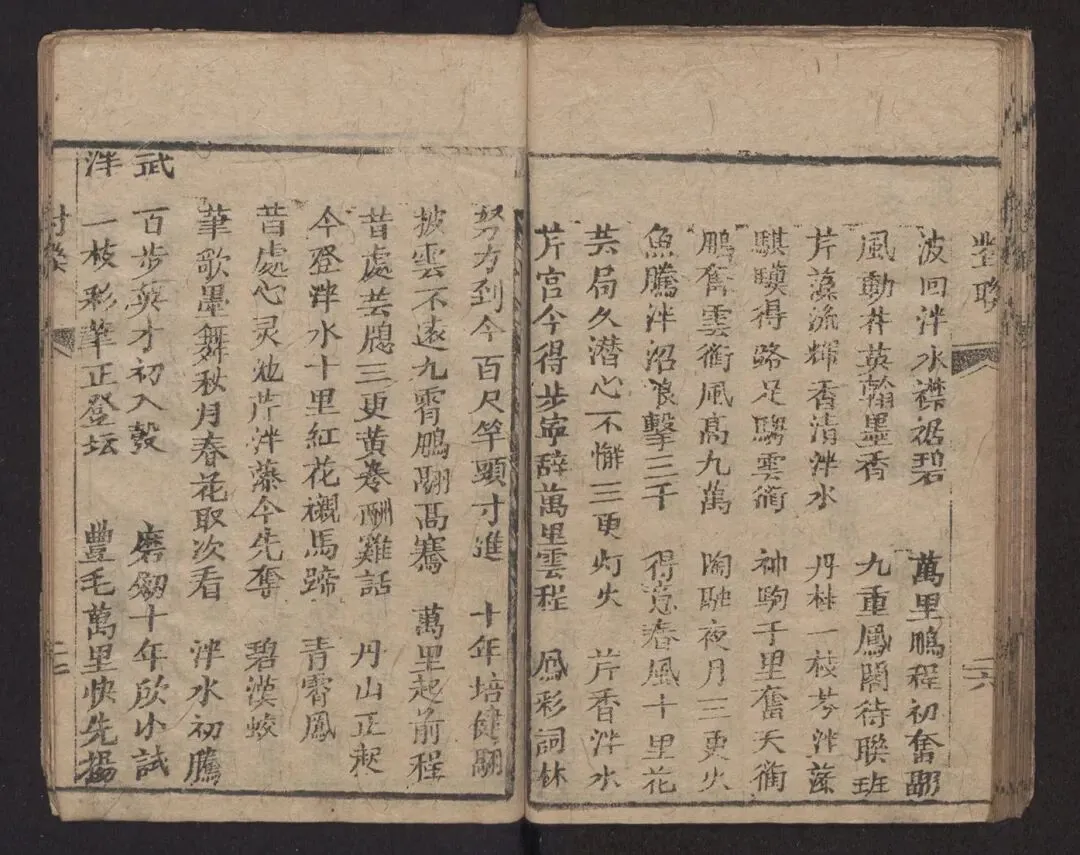 對聯
二六
波回泮水襟裾碧 萬里鵬程初奮翮
風動芹英翰墨香 九重鳳閣待聯班
芹藻流輝香清泮水 丹桂一枝芩泮藻
騏驥得路足騁雲衢 神駒千里奮天衢
鵬奮雲衢風高九萬 陶馳夜月三更火
魚騰泮沼浪擊三千 得意春風十里花
芸局久潜心不懈三更灯火 芹香泮水
芹宫今得步寕辞萬里雲程 鳳彩詞林
努力到今百尺竿頭寸進 十年培健翮
披雲不遠九霄鵬翮高騫 萬里起前程
昔處芸牕三更黄卷酬雞話 丹山正起
今登泮水十里紅花襯馬蹄 青霄鳳
昔處心灵池芹泮藻今先奪 碧漢蛟
筆歌墨舞秋月春花取次看 泮水初騰
武 百步英才初入彀 磨劒十年欣小試
泮 一枝彩筆正登坛 豐毛萬里快先揚